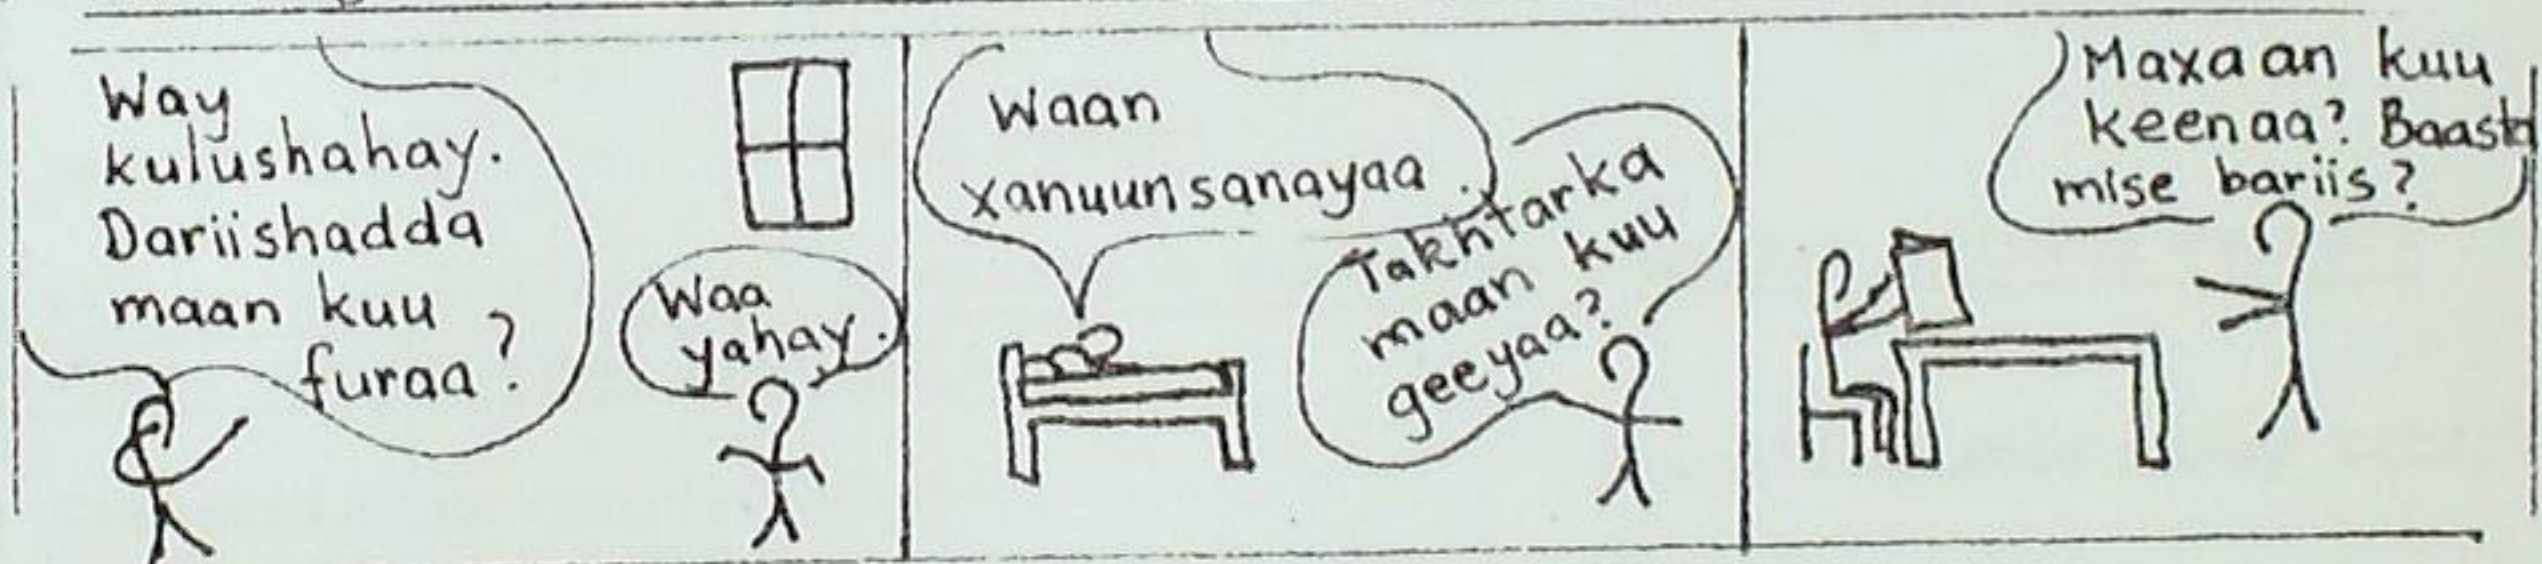 Way
kulushahay.
Dariishadda
maan kuu
furaa?
Waa
yahay.
Waan
xanuunsanayaa.
Takhtarka
maan kuu
geeyaa?
Maxaan kuu
keenaa? Baasto
mise bariis?